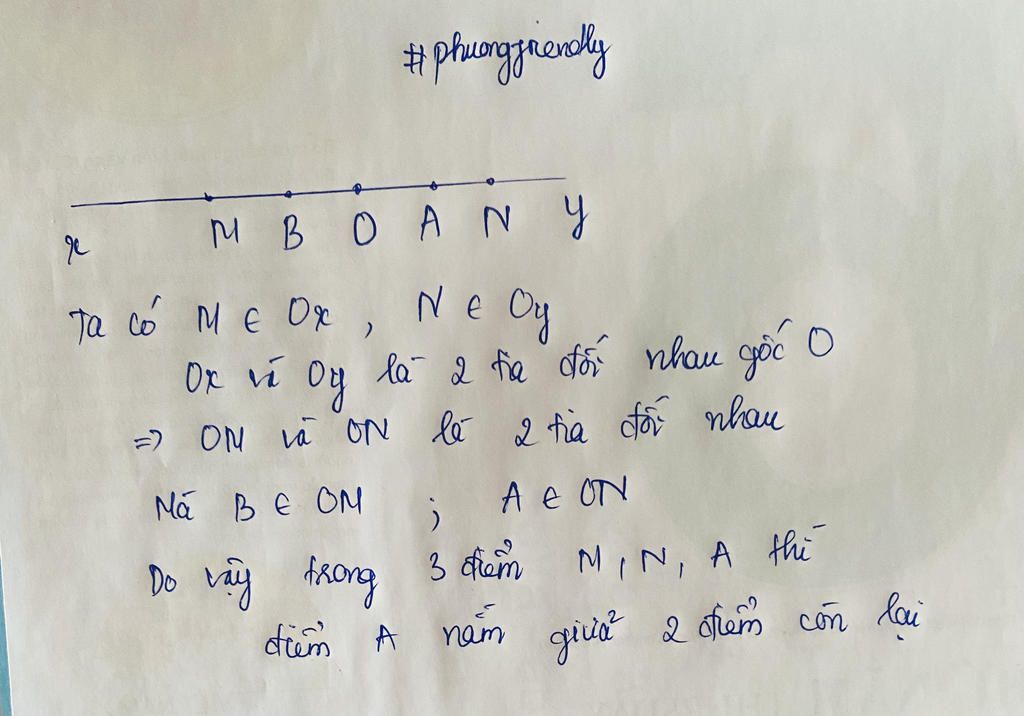 #phuongfriendly
x M B O A N y
Ta có M ∈ Ox , N ∈ Oy
Ox và Oy là 2 tia đối nhau gốc O
=> OM và ON là 2 tia đối nhau
Mà B ∈ OM ; A ∈ ON
Do vậy trong 3 điểm M, N, A thì
điểm A nằm giữa 2 điểm còn lại